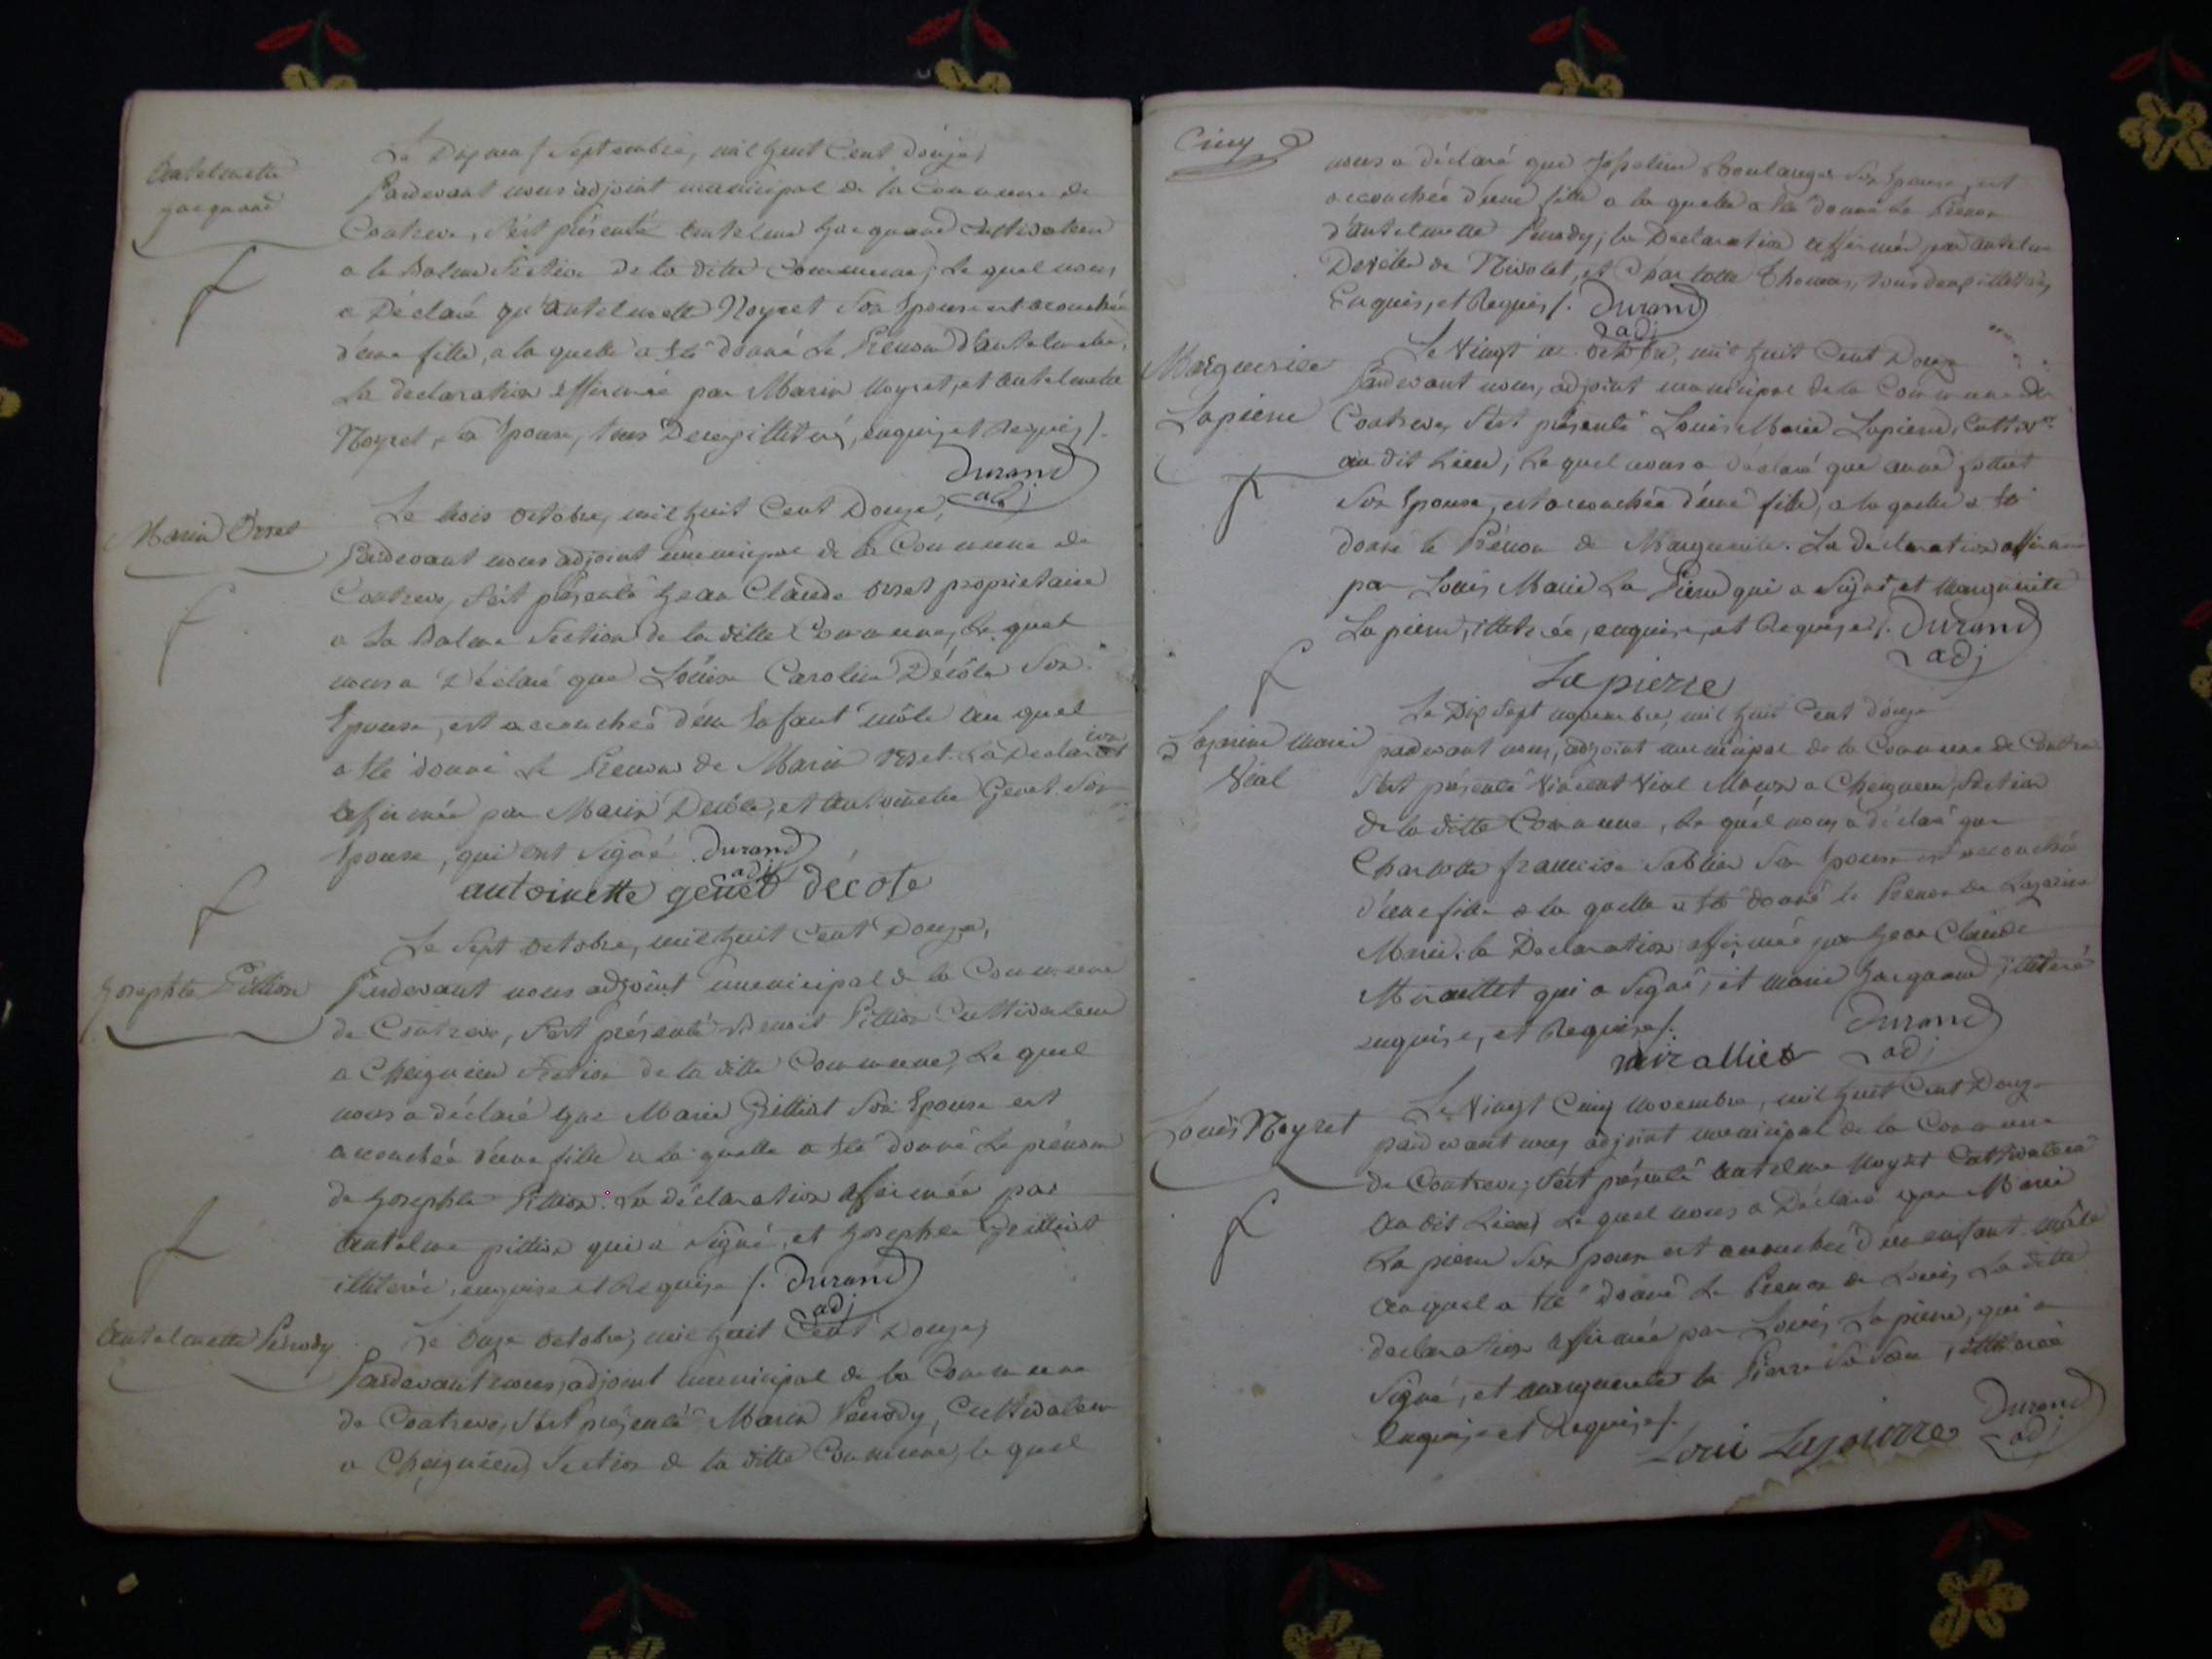 Antelmette
Jacquand
Le Dix neuf septembre, mil huit Cent douze,
Pardevant nous adjoint municipal de la Commune de
Contrevo, s'est présenté Antelme Jacquand Cultivateur
a la Balme Section de la ditte Commune, Le quel nous
a Déclaré qu'Antelmette Noyret Son Epouse est acouchée
d'une fille, a la quelle a été donné Le Prenom d'antelmette,
La declaration affirmée par Marin Noyret, et antelmette
Noyret Sa Epouse, tous Deux illitéré, enquis et Requis /.
Durand
adj
Marin Orset
Le trois Octobre, mil huit Cent Douze,
Pardevant nous adjoint municipal de la Commune de
Contrevo, s'est présenté Jean Claude Orset proprietaire
a La Balme Section de la ditte Commune, Le quel
nous a Déclaré que Louise Caroline Décôte Son
Epouse, est accouchée d'un Enfant mâle au quel
a été donné Le Prenom de Marin Orset. La Declaration
affirmée par Marin Decôte, et Antoinette Genet Son
Epouse, qui ont Signé. Durand
adj
antoinette genet décote
Josephte Pittion
Le Sept Octobre, mil huit Cent Douze,
Pardevant nous adjoint municipal de la Commune
de Contrevo, s'est présenté Benoit Pittion Cultivateur
a Cheignieu Section de la ditte Commune, Le quel
nous a déclaré que Marie Son Epouse est
acouchée d'une fille a la quelle a été donné Le prénom
de Josephte Pittion. La déclaration affirmée par
Antelme pittion qui a Signé, et Josephte
illiterée, enquise et Requise /. Durand
adj
Antelmette Perrody
Le Onze Octobre, mil huit Cent Douze,
Pardevant nous, adjoint municipal de la Commune
de Contrevo, s'est présenté Marin Perrody, Cultivateur
a Cheignieu, Section de la ditte Commune, le quel
Cinq
nous a déclaré que Josseline Boulanger Son Epouse, est
accouchée d'une fille a la quelle a été donné Le Prenom
d'antelmette Perrody; la Declaration affirmée par antelme
de Nivolet, et Charlotte Thomas, tous deux illitérés,
Enquis, et Requis /. Durand
adj
Marguerite
Lapierre
Le Vingt un Octobre, mil huit Cent Douze
Pardevant nous, adjoint municipal de la Commune de
Contrevo, s'est présenté Louis Marie Lapierre, Cultivr
au dit Lieu; Le quel nous a déclaré que anne
Son Epouse, est acouchée d'une fille, a la quelle a été
donné le Prénom de Marguerite. La declaration affirmée
par Louis Marie La Pierre qui a Signé, et marguerite
Lapierre, illitérée, enquise, et Requise /. Durand
adj
Lapierre
Lazarine Marie
Vial
Le Dix Sept novembre, mil huit Cent douze
pardevant nous, adjoint municipal de la Commune de Contrevo
s'est présenté Vincent Vial Maçon a Cheignieu, Section
de la ditte Commune, Le quel nous a déclaré que
Charlotte françoise Sablier Son Epouse est acouchée
d'une fille a la quelle a été donné le Prenom de Lazarine
Marie. la Declaration affirmée par Jean Claude
qui a Signé, et marie Jacquand, illiteré
enquise, et Requise /.
Durand
adj
mirallies
Louis Noyret
Le Vingt Cinq Novembre, mil huit Cent Douze
pardevant nous adjoint municipal de la Commune
de Contrevo, s'est présenté Antelme Noyret Cultivateur
au dit Lieu, Le quel nous a Déclaré que Marie
La pierre Son Epouse est acouchée d'un enfant mâle
auquel a été donné Le Prenom de Louis, La ditte
declaration affirmée par Louis Lapierre, qui a
Signé, et marguerite la Pierre Sa Soeur, illiterée
Enquise et Requise /.
Durand
adj
Loui Lapierre